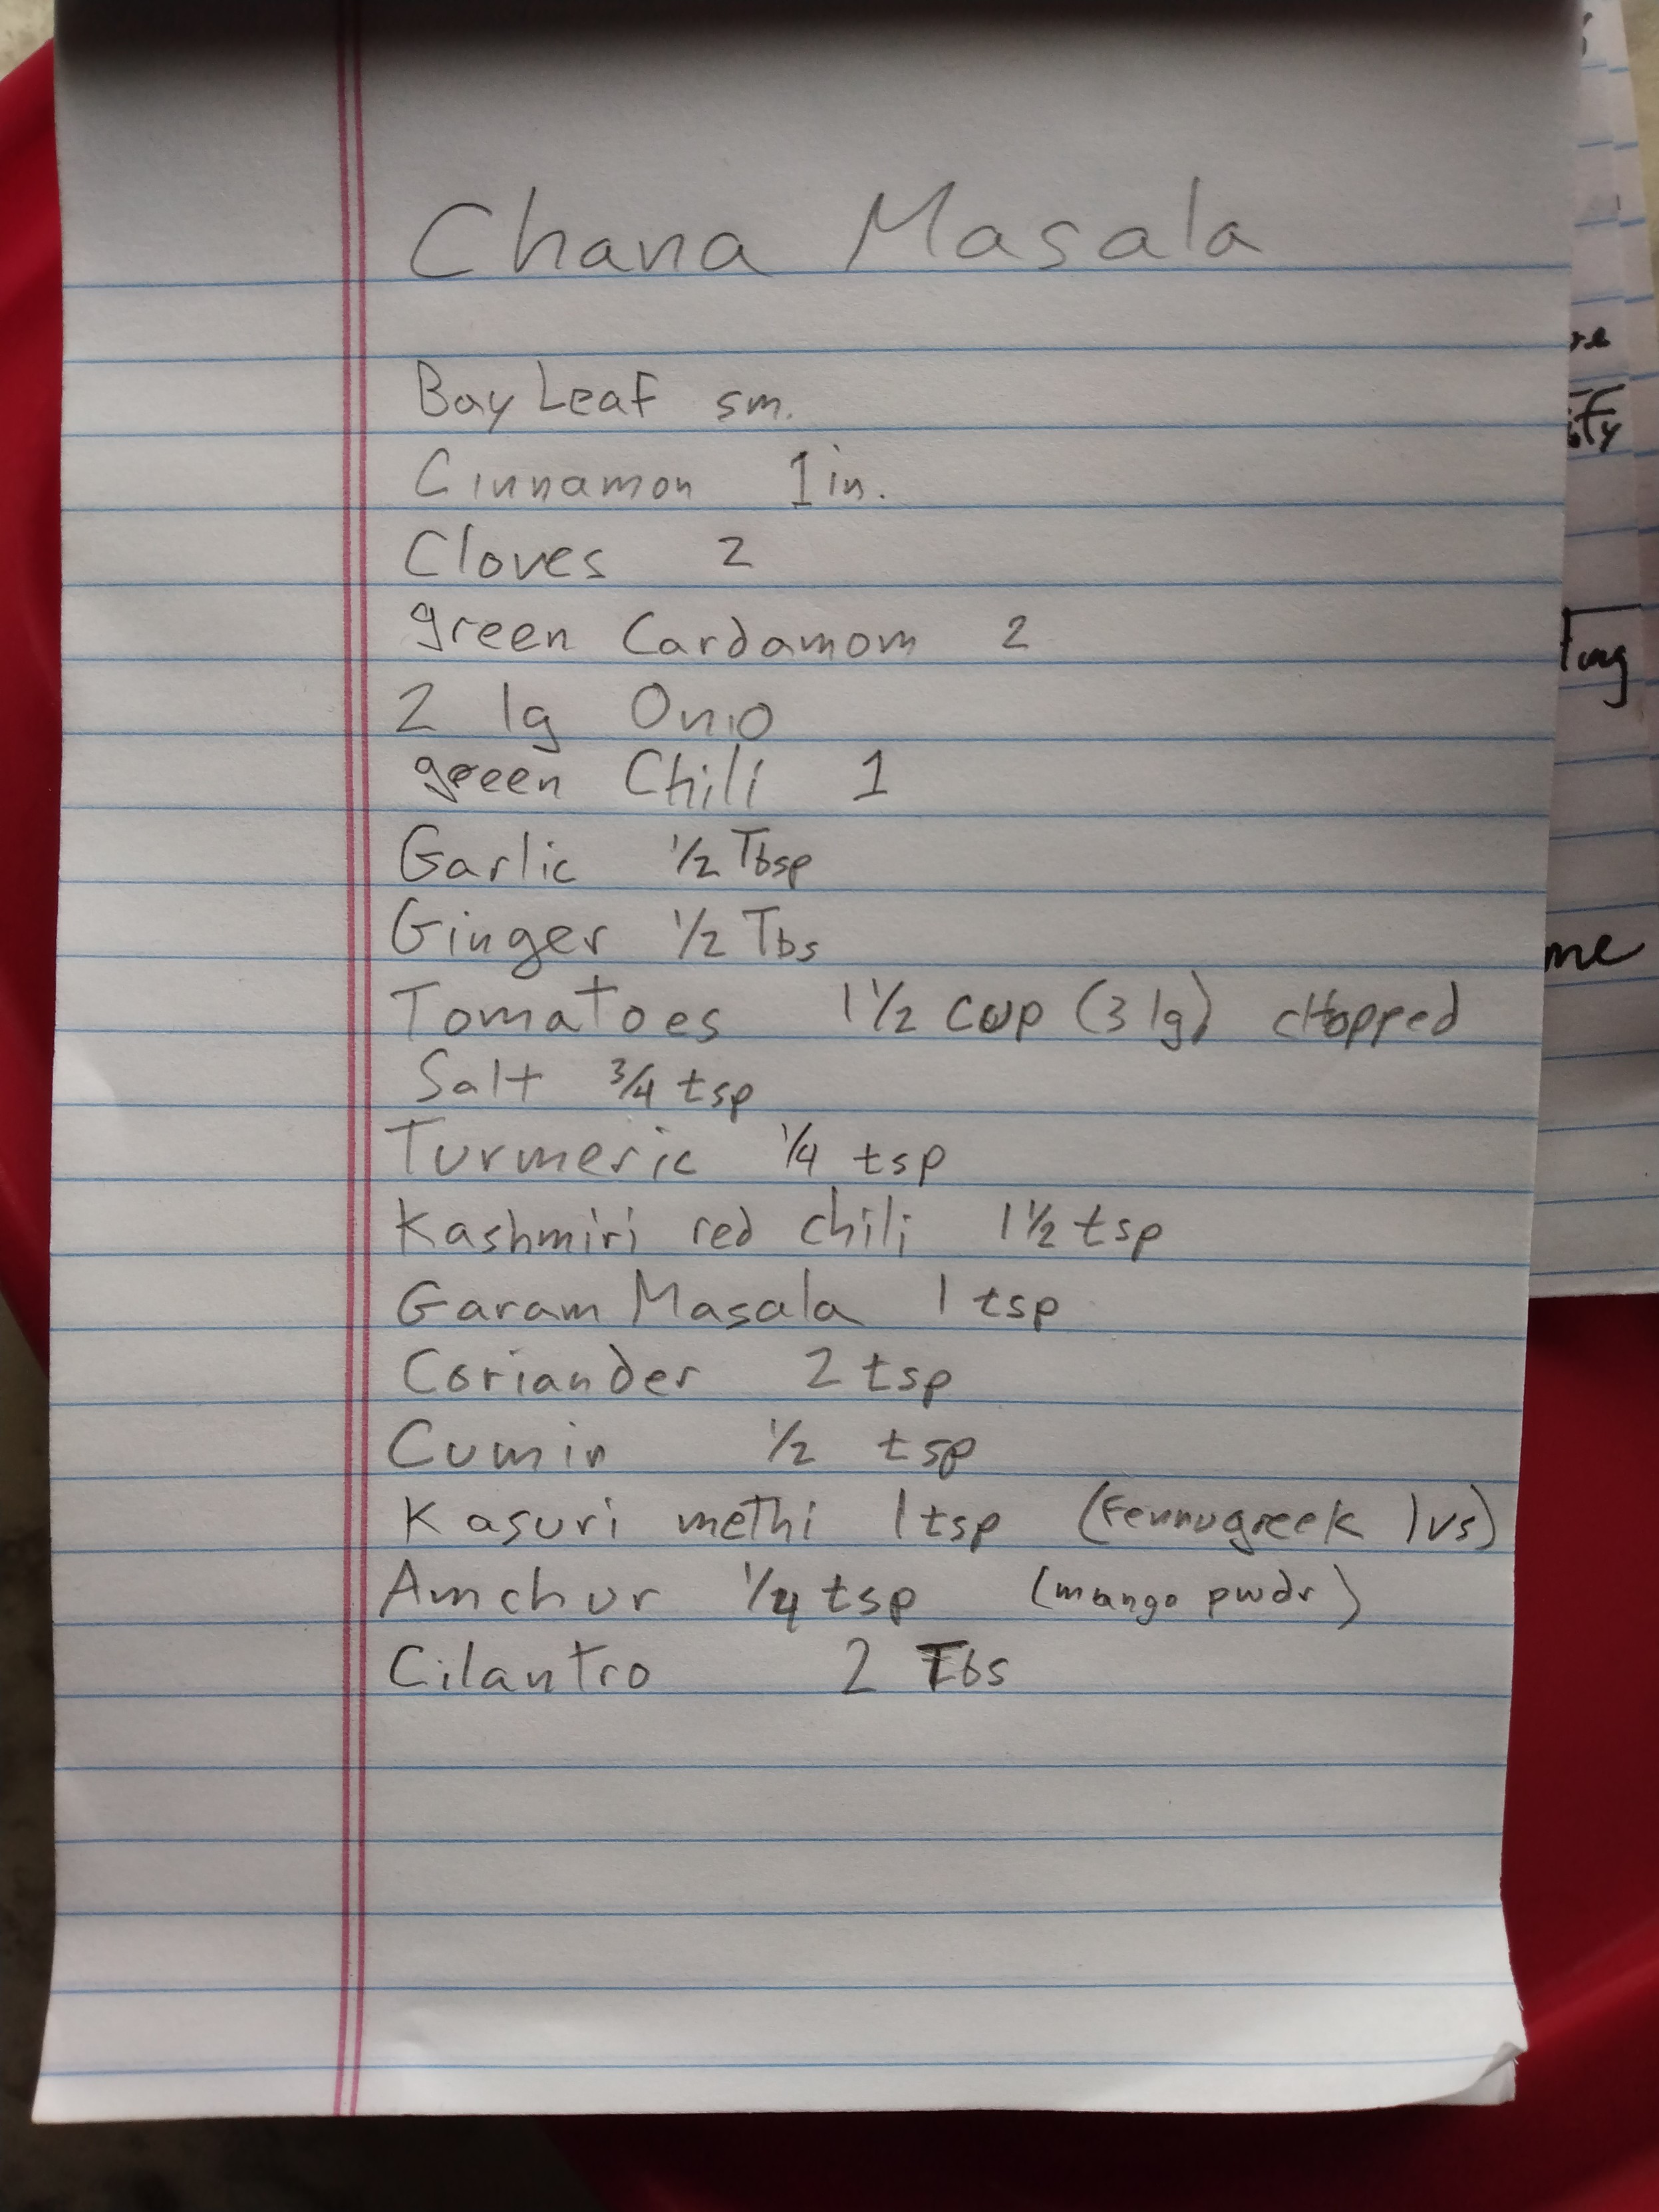 Chana Masala
Bay Leaf sm.
Cinnamon 1 in.
Cloves 2
green Cardamom 2
2 lg Onio
green Chili 1
Garlic 1/2 Tbsp
Ginger 1/2 Tbs
Tomatoes 1 1/2 cup (3 lg) cHopped
Salt 3/4 tsp
Turmeric 1/4 tsp
Kashmiri red chili 1 1/2 tsp
Garam Masala 1 tsp
Coriander 2 tsp
Cumin 1/2 tsp
Kasuri methi 1 tsp (Fennugreek lvs)
Amchur 1/4 tsp (mango pwdr)
Cilantro 2 Tbs
me